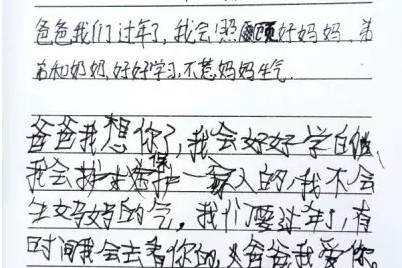 爸爸我们过年了,我会照顾好妈妈,弟
弟和奶奶,好好学习,不惹妈妈生气.
爸爸我想你了,我会好好学自
我会保护一家人的,我不会
生妈妈的气。我们要过年了,有
时间我会去看你的,爸爸我爱你。